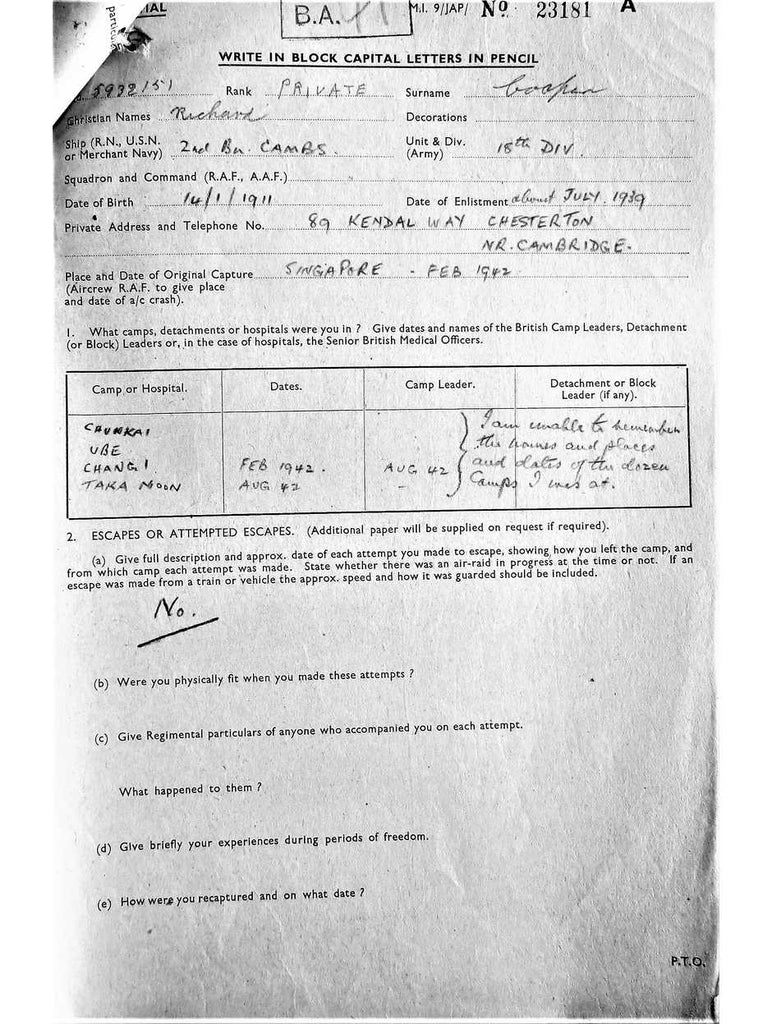 IAL
particu
B.A.
M.I. 9/JAP/ No 23181 A
WRITE IN BLOCK CAPITAL LETTERS IN PENCIL
5932151 Rank PRIVATE Surname Cooper
Christian Names Richard Decorations
Ship (R.N., U.S.N. or Merchant Navy) 2nd Bn. CAMBS. Unit & Div. (Army) 18th DIV.
Squadron and Command (R.A.F., A.A.F.)
Date of Birth 14/1/1911 Date of Enlistment about JULY 1939
Private Address and Telephone No. 89 KENDAL WAY CHESTERTON
NR. CAMBRIDGE.
Place and Date of Original Capture SINGAPORE - FEB 1942.
(Aircrew R.A.F. to give place
and date of a/c crash).
1. What camps, detachments or hospitals were you in ? Give dates and names of the British Camp Leaders, Detachment
(or Block) Leaders or, in the case of hospitals, the Senior British Medical Officers.
Camp or Hospital. Dates. Camp Leader. Detachment or Block Leader (if any).
CHUNKAI I am unable to remember
UBE the names and places
CHANGI FEB 1942. AUG 42 and dates of the dozen
TAKA NOON AUG 42 - Camps I was at.
2. ESCAPES OR ATTEMPTED ESCAPES. (Additional paper will be supplied on request if required).
(a) Give full description and approx. date of each attempt you made to escape, showing how you left the camp, and
from which camp each attempt was made. State whether there was an air-raid in progress at the time or not. If an
escape was made from a train or vehicle the approx. speed and how it was guarded should be included.
No.
(b) Were you physically fit when you made these attempts ?
(c) Give Regimental particulars of anyone who accompanied you on each attempt.
What happened to them ?
(d) Give briefly your experiences during periods of freedom.
(e) How were you recaptured and on what date ?
P.T.O.